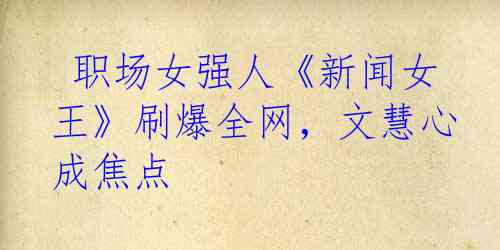 职场女强人《新闻女
王》刷爆全网，文慧心
成焦点